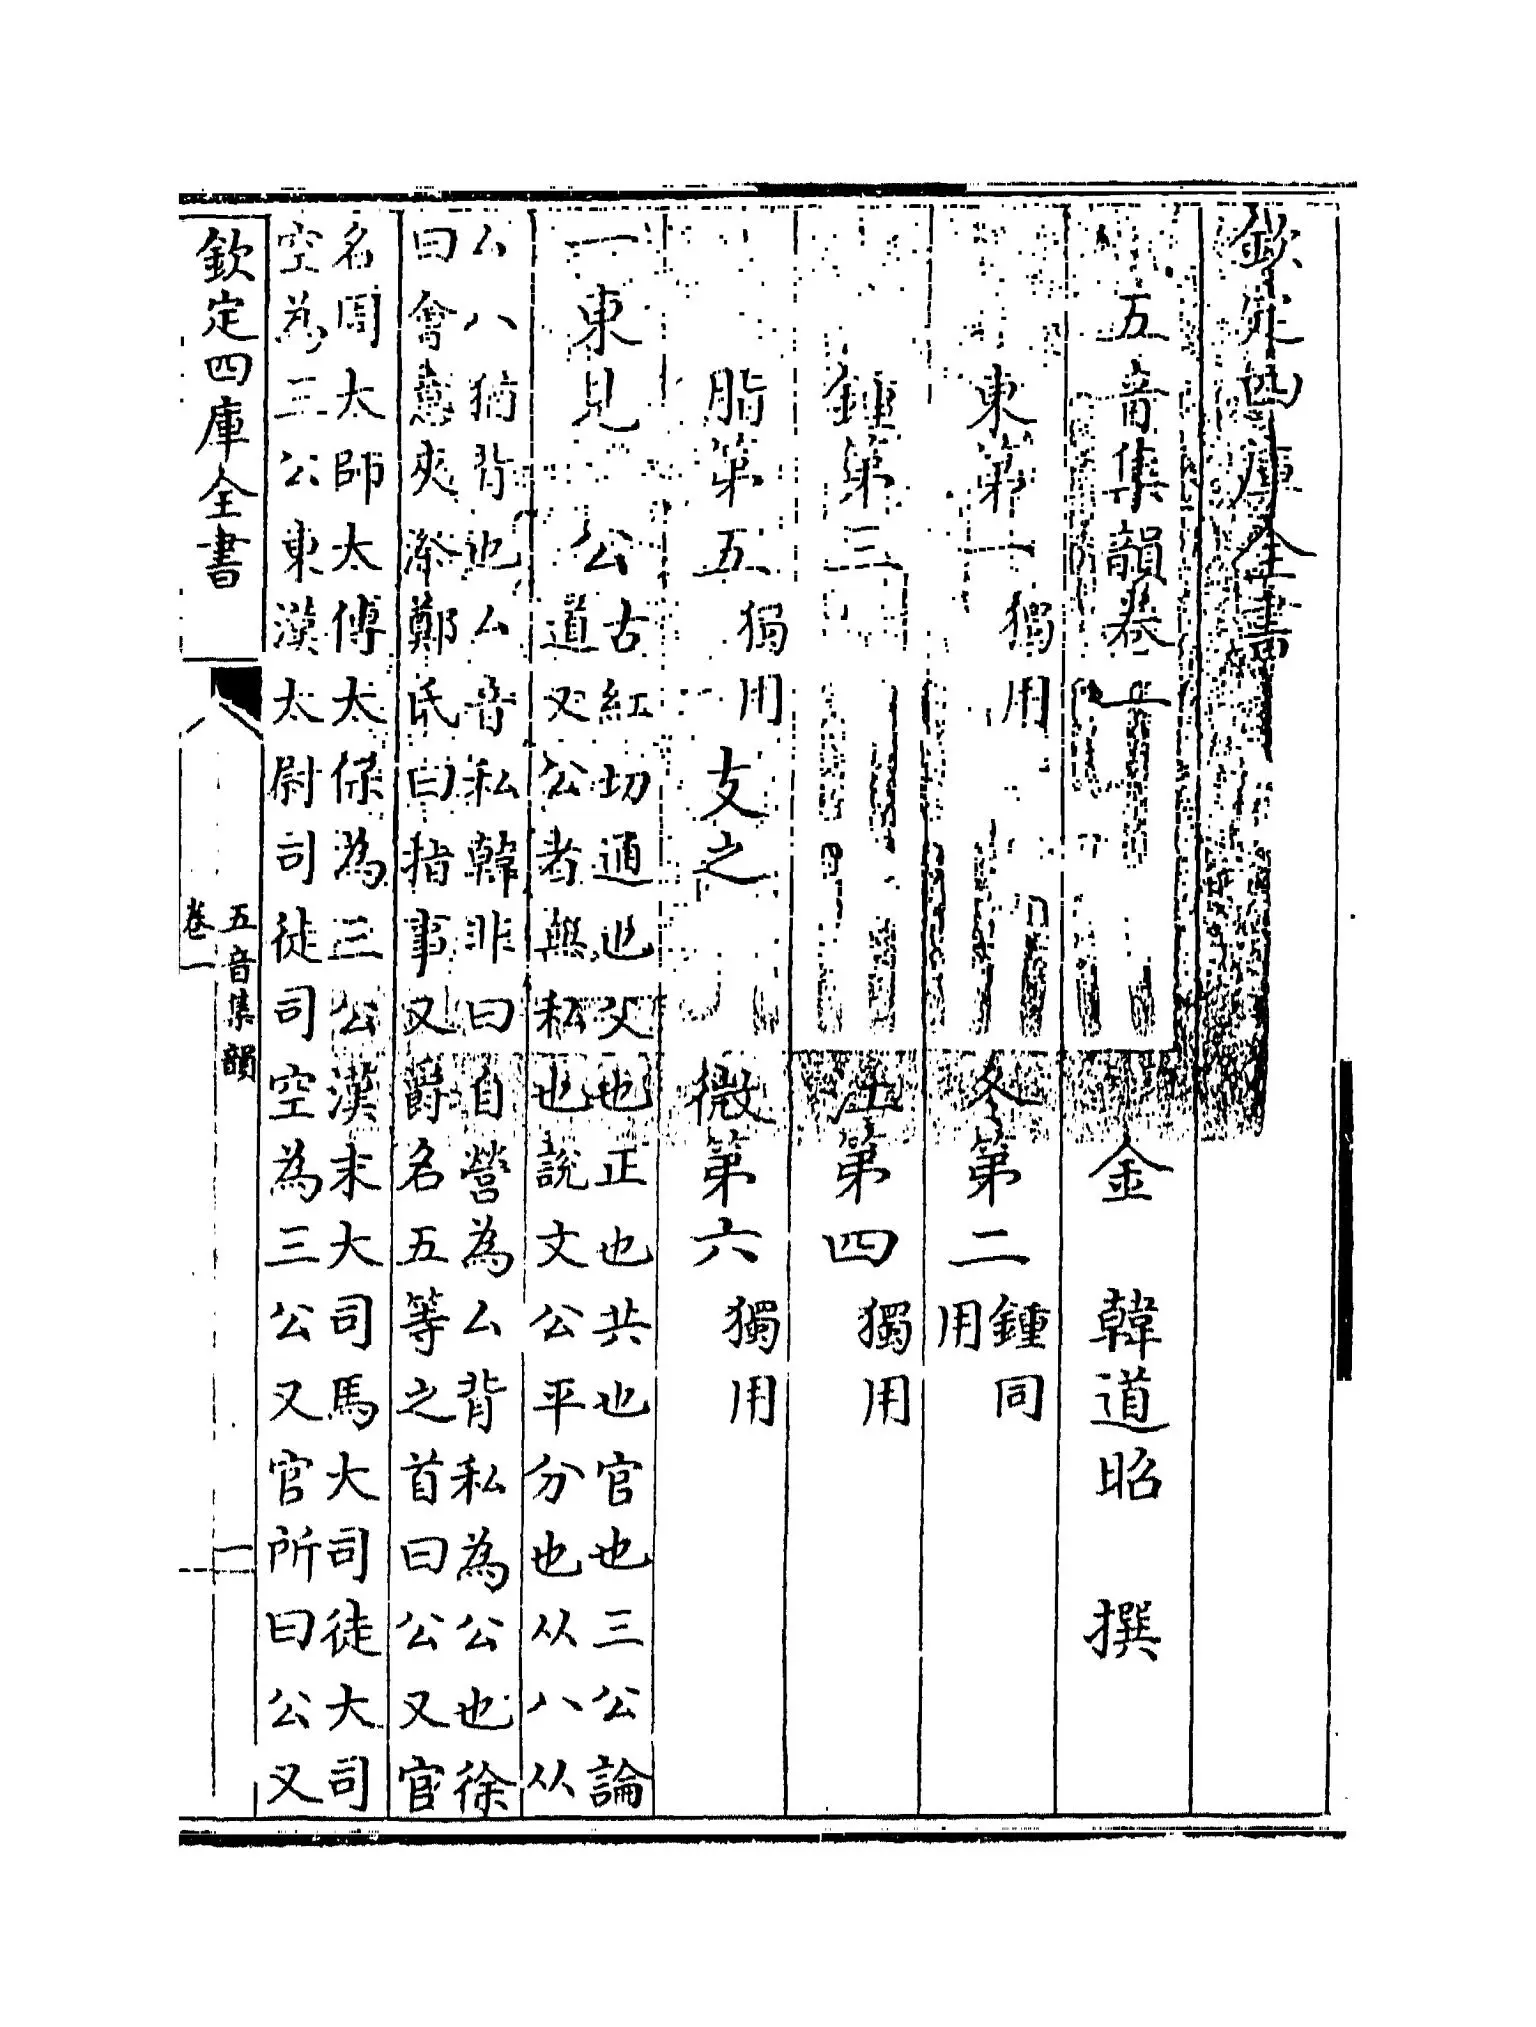 欽定四庫全書
五音集韻卷一　金　韓道昭　撰
東第一獨用　冬第二鍾同用
鍾第三　江第四獨用
脂第五獨用支之　微第六獨用
一東見　公古紅切通也父也正也共也官也三公論
道又公者無私也説文公平分也从八从
厶八猶背也厶音私韓非曰自營為厶背私為公也徐
曰會意夾漈鄭氏曰指事又爵名五等之首曰公又官
名周太師太傅太保為三公漢末大司馬大司徒大司
空為三公東漢太尉司徒司空為三公又官所曰公又
欽定四庫全書
五音集韻
卷一
一